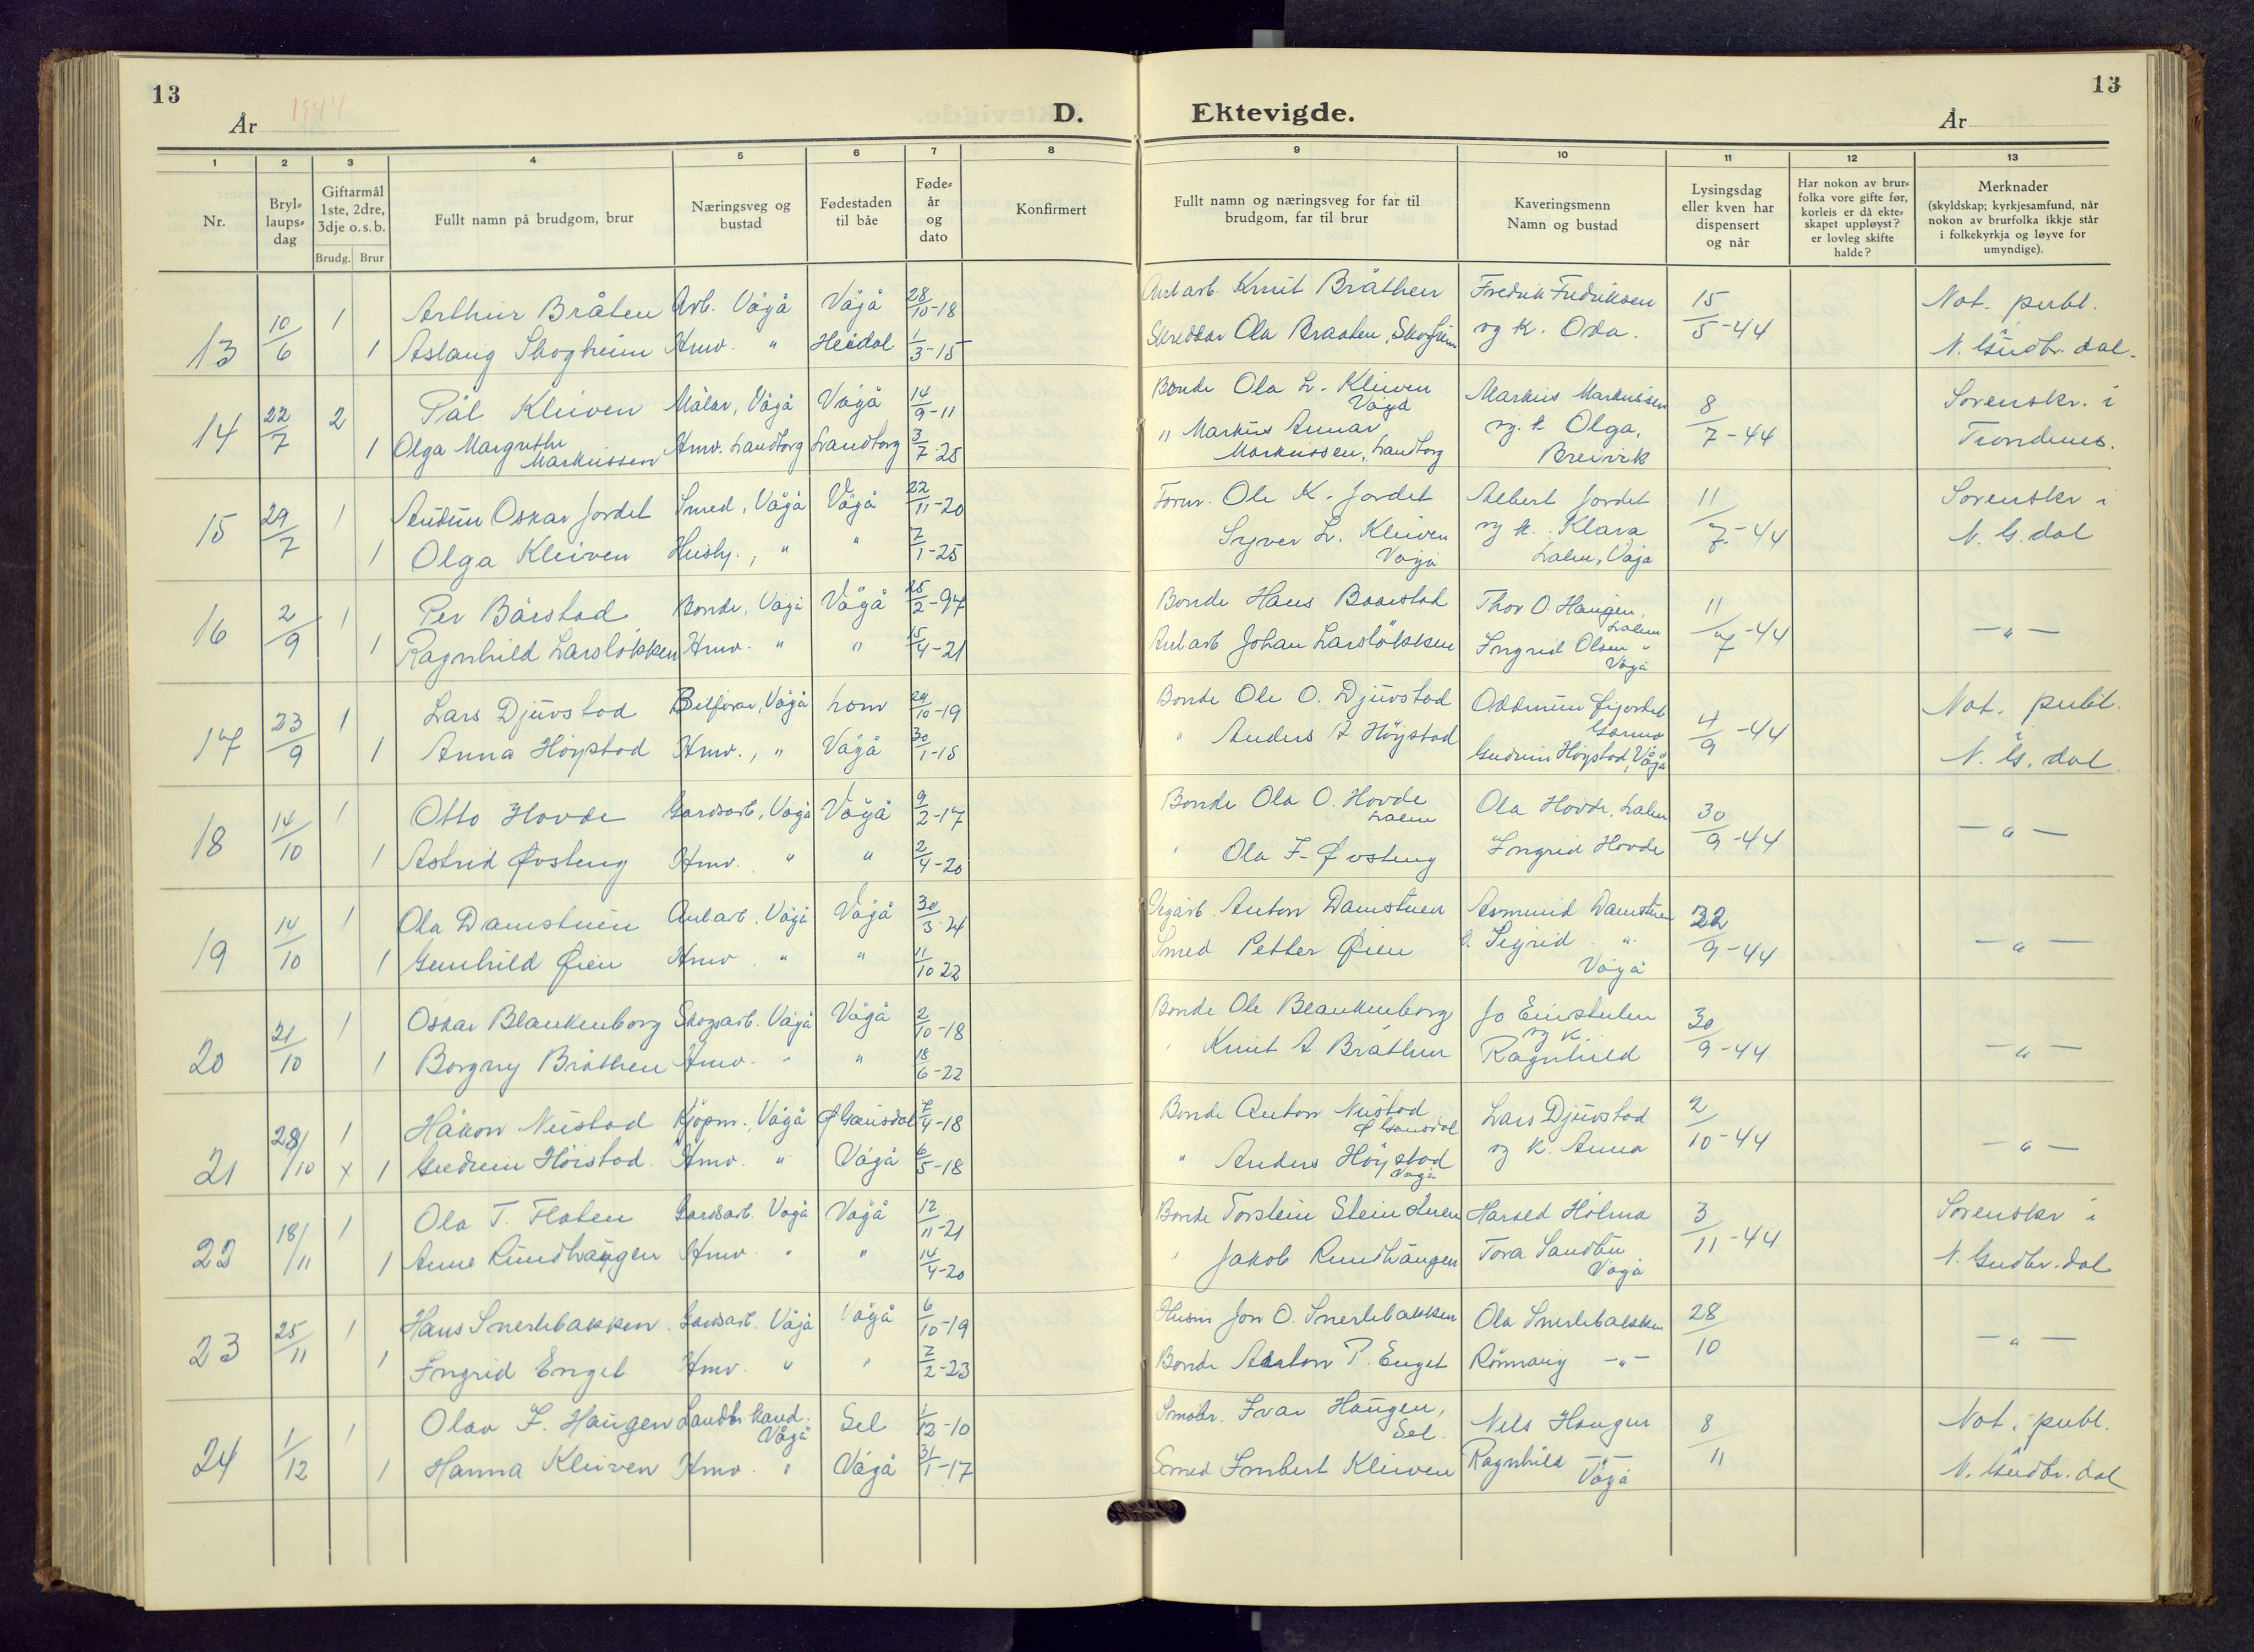 13
År 1944
D. Ektevigde.
13
År
1 2 3 4 5 6 7 8 9 10 11 12 13
Nr.
Bryl-laups-dag
Giftarmål 1ste, 2dre, 3dje o.s.b.
Brudg. Brur
Fullt namn på brudgom, brur
Næringsveg og bustad
Fødestaden til båe
Føde-år og dato
Konfirmert
Fullt namn og næringsveg for far til brudgom, far til brur
Kaveringsmenn Namn og bustad
Lysingsdag eller kven har dispensert og når
Har nokon av brur-folka vore gifte før, korleis er då ekte-skapet uppløyst? er lovleg skifte halde?
Merknader (skyldskap; kyrkjesamfund, når nokon av brurfolka ikkje står i folkekyrkja og løyve for umyndige).
13 10/6 1 Arthur Bråten Arb. Vågå Vågå 28/10-18 Anl.arb. Knut Bråthen Fredrik Fredriksen 15/5-44 Not. publ.
1 Aslaug Skogheim Hmv. " Heidal 1/3-15 Skreddar Ola Braaten, Skogheim og k. Oda. N. Gudbr. dal.
14 22/7 2 Pål Kleiven Målar, Vågå Vågå 14/9-11 Bonde Ola L. Kleiven Vågå Markus Markussen 8/7-44 Sorenskr. i
1 Olga Margrethe Markussen Hmv. Landtorg Landtorg 3/7-25 " Markus Annar Markussen, Landtorg og k. Olga, Breivik Trondenes.
15 29/7 1 Audun Oskar Jordet Smed, Vågå Vågå 22/11-20 Forur. Ole K. Jordet Albert Jordet 11/7-44 Sorenskr i
1 Olga Kleiven Hushj., " " 7/1-25 Syver L. Kleiven Vågå og k. Klara Lalm, Vågå N. G. dal
16 2/9 1 Per Bårstad Bonde, Vågå Vågå 25/2-97 Bonde Hans Baarstad Thor O. Haugen, Lalm 11/7-44 -"-
1 Ragnhild Larsløkken Hmv. " " 15/4-21 Anl.arb Johan Larsløkken Ingrid Olsen " Vågå
17 23/9 1 Lars Djuvstad Bilførar, Vågå Lom 24/10-19 Bonde Ole O. Djuvstad Oddmun Øygardet Garmo 4/9-44 Not. publ.
1 Anna Høystad Hmv., " Vågå 30/1-15 " Anders A Høystad Gudrun Høystad, Vågå N. G. dal
18 14/10 1 Otto Hovde Gardsarb, Vågå Vågå 9/2-17 Bonde Ola O. Hovde Lalm Ola Hovde, Lalm 30/9-44 -"-
1 Astrid Øvsteng Hmv. " " 2/4-20 " Ola I. Øvsteng Ingrid Hovde
19 14/10 1 Ola Damstuen Anl.arb. Vågå Vågå 30/3-24 Vegarb. Anton Damstuen Asmund Damstuen 22/9-44 -"-
1 Gunhild Øien Hmv. " " 11/10 22 Smed Petter Øien k. Sigrid " Vågå
20 21/10 1 Oskar Blankenborg Skogsarb. Vågå Vågå 2/10-18 Bonde Ole Blankenborg Jo Einstulen 30/9-44 -"-
1 Borgny Bråthen Hmv. " " 18/6-22 " Knut A. Bråthen og k. Ragnhild
21 28/10 1 Håkon Nustad Kjøpm., Vågå Ø Gausdal 7/4-18 Bonde Anton Nustad Ø Gausdal Lars Djuvstad 2/10-44 -"-
x 1 Gudrun Høistad. Hmv. " Vågå 6/5-18 " Anders Høystad Vågå og k. Anna
22 18/11 1 Ola T. Flaten Gardsarb. Vågå Vågå 12/11-21 Bonde Torstein Steinstuen Harald Holmo 3/11-44 Sorenskr i
1 Anne Rundhaugen Hmv. " " 14/4-20 " Jakob Rundhaugen Tora Sandbu Vågå N. Gudbr. dal
23 25/11 1 Hans Snerlebakken Gardsarb. Vågå Vågå 6/10-19 Husm Jon O. Snerlebakken Ola Snerlebakken 28/10 -"-
1 Ingrid Enget Hmv. " " 7/2-23 Bonde Anton P. Enget Rønnaug -"-
24 1/12 1 Olav I. Haugen Landbr.kand. Vågå Sel 1/12-10 Småbr. Ivar Haugen, Sel. Nils Haugen 8/11 Not. publ.
1 Hanna Kleiven Hmv. " Vågå 31/1-17 Smed Imbert Kleiven Ragnhild -"- Vågå N. Gudbr. dal